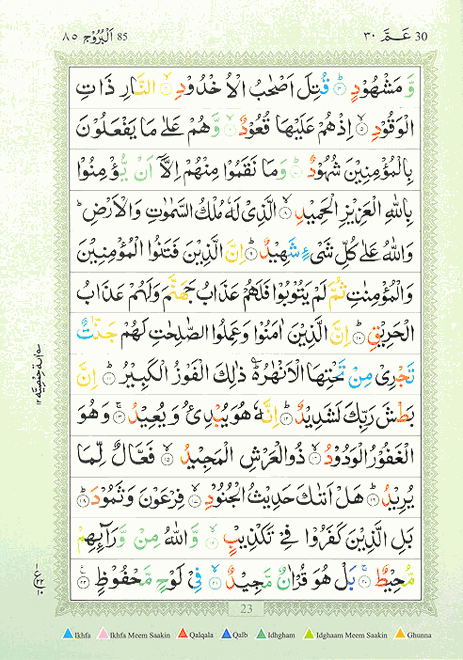 30 عَمَّ ٣٠
85 اَلْبُرُوْج ٨٥
وَّ مَشْهُوْدٍ ۟ قُتِلَ اَصْحٰبُ الْاُخْدُوْدِ ۟ النَّارِ ذَاتِ
الْوَقُوْدِ ۟ اِذْ هُمْ عَلَيْهَا قُعُوْدٌ ۟ وَّ هُمْ عَلٰى مَا يَفْعَلُوْنَ
بِالْمُؤْمِنِيْنَ شُهُوْدٌ ۟ وَمَا نَقَمُوْا مِنْهُمْ اِلَّاۤ اَنْ يُّؤْمِنُوْا
بِاللّٰهِ الْعَزِيْزِ الْحَمِيْدِ ۟ الَّذِيْ لَهٗ مُلْكُ السَّمٰوٰتِ وَالْاَرْضِ ؕ
وَاللّٰهُ عَلٰى كُلِّ شَيْءٍ شَهِيْدٌ ۟ اِنَّ الَّذِيْنَ فَتَنُوا الْمُؤْمِنِيْنَ
وَالْمُؤْمِنٰتِ ثُمَّ لَمْ يَتُوْبُوْا فَلَهُمْ عَذَابُ جَهَنَّمَ وَلَهُمْ عَذَابُ
الْحَرِيْقِ ۟ اِنَّ الَّذِيْنَ اٰمَنُوْا وَعَمِلُوا الصّٰلِحٰتِ لَهُمْ جَنّٰتٌ
تَجْرِيْ مِنْ تَحْتِهَا الْاَنْهٰرُ ؕ ذٰلِكَ الْفَوْزُ الْكَبِيْرُ ۟ اِنَّ
بَطْشَ رَبِّكَ لَشَدِيْدٌ ۟ اِنَّهٗ هُوَ يُبْدِئُ وَ يُعِيْدُ ۟ وَهُوَ
الْغَفُوْرُ الْوَدُوْدُ ۟ ذُو الْعَرْشِ الْمَجِيْدُ ۟ فَعَّالٌ لِّمَا
يُرِيْدُ ۟ هَلْ اَتٰىكَ حَدِيْثُ الْجُنُوْدِ ۟ فِرْعَوْنَ وَثَمُوْدَ ۟
بَلِ الَّذِيْنَ كَفَرُوْا فِيْ تَكْذِيْبٍ ۟ وَّ اللّٰهُ مِنْ وَّرَآئِهِمْ
مُّحِيْطٌ ۟ بَلْ هُوَ قُرْاٰنٌ مَّجِيْدٌ ۟ فِيْ لَوْحٍ مَّحْفُوْظٍ ۟
23
Ikhfa Ikhfa Meem Saakin Qalqala Qalb Idhgham Idghaam Meem Saakin Ghunna